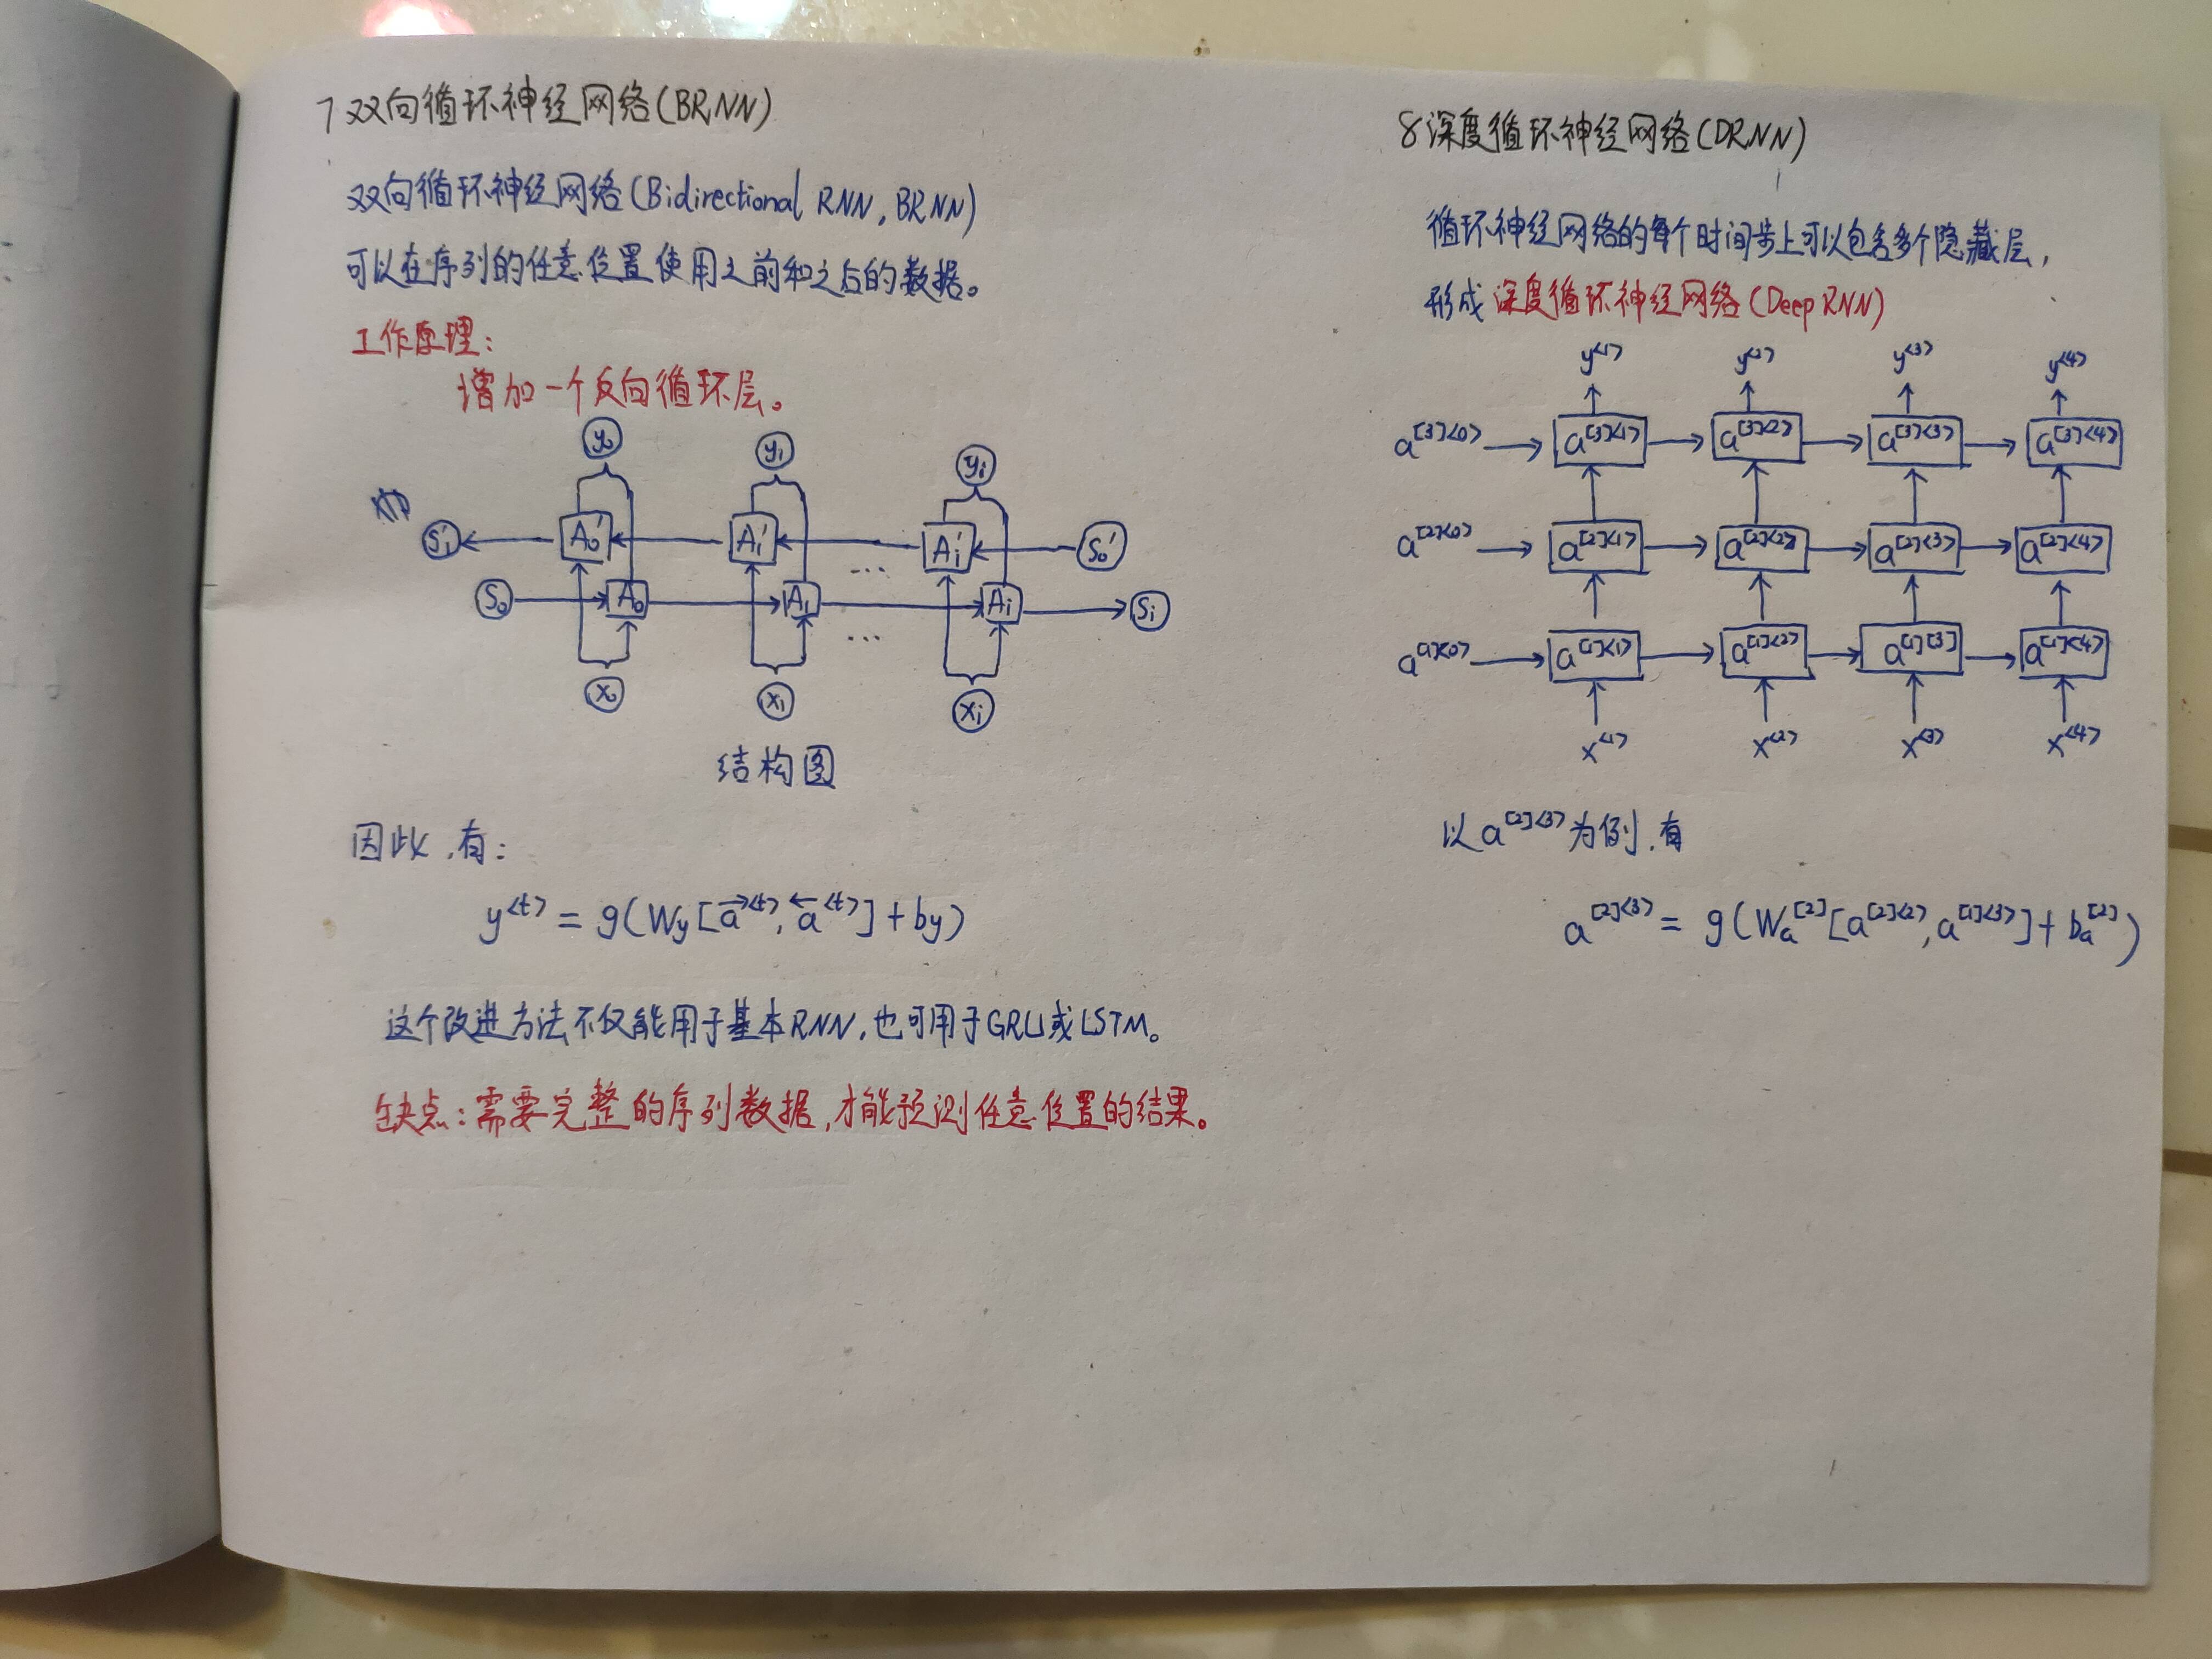 7 双向循环神经网络(BRNN)
双向循环神经网络(Bidirectional RNN, BRNN)
可以在序列的任意位置使用之前和之后的数据。
工作原理:
增加一个反向循环层。
y₀ y₁ yᵢ
S'ᵢ A₀' A₁' Aᵢ' S₀'
...
S₀ A₀ A₁ Aᵢ Sᵢ
...
x₀ x₁ xᵢ
结构图
因此,有:
y<t> = g(Wy[→a<t>, ←a<t>]+by)
这个改进方法不仅能用于基本RNN,也可用于GRU或LSTM。
缺点:需要完整的序列数据,才能预测任意位置的结果。
8 深度循环神经网络(DRNN)
循环神经网络的每个时间步上可以包含多个隐藏层,
形成深度循环神经网络(Deep RNN)
y<1> y<2> y<3> y<4>
a[3]<0> a[3]<1> a[3]<2> a[3]<3> a[3]<4>
a[2]<0> a[2]<1> a[2]<2> a[2]<3> a[2]<4>
a[1]<0> a[1]<1> a[1]<2> a[1][3] a[1]<4>
x<1> x<2> x<3> x<4>
以a[2]<3>为例,有
a[2]<3> = g(Wa[2][a[2]<2>, a[1]<3>]+ba[2])